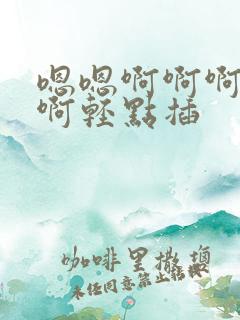 嗯嗯啊啊啊
啊輕點插
咖啡里撒塩
未经同意禁止转载